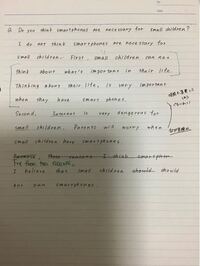 Q. Do you think smartphones are necessary for small children?
I do not think smartphones are necessary for
small children. First, small children can not
think about what's important in their life.
Thinking about their life, is very important
when they have smart phones.
Second, Internet is very dangerous for
small children. Parents will worry when
small children have smartphones.
Because, these reasons I think smartphon
I've these two reasons,
I believe that small children should should
not own smartphones.